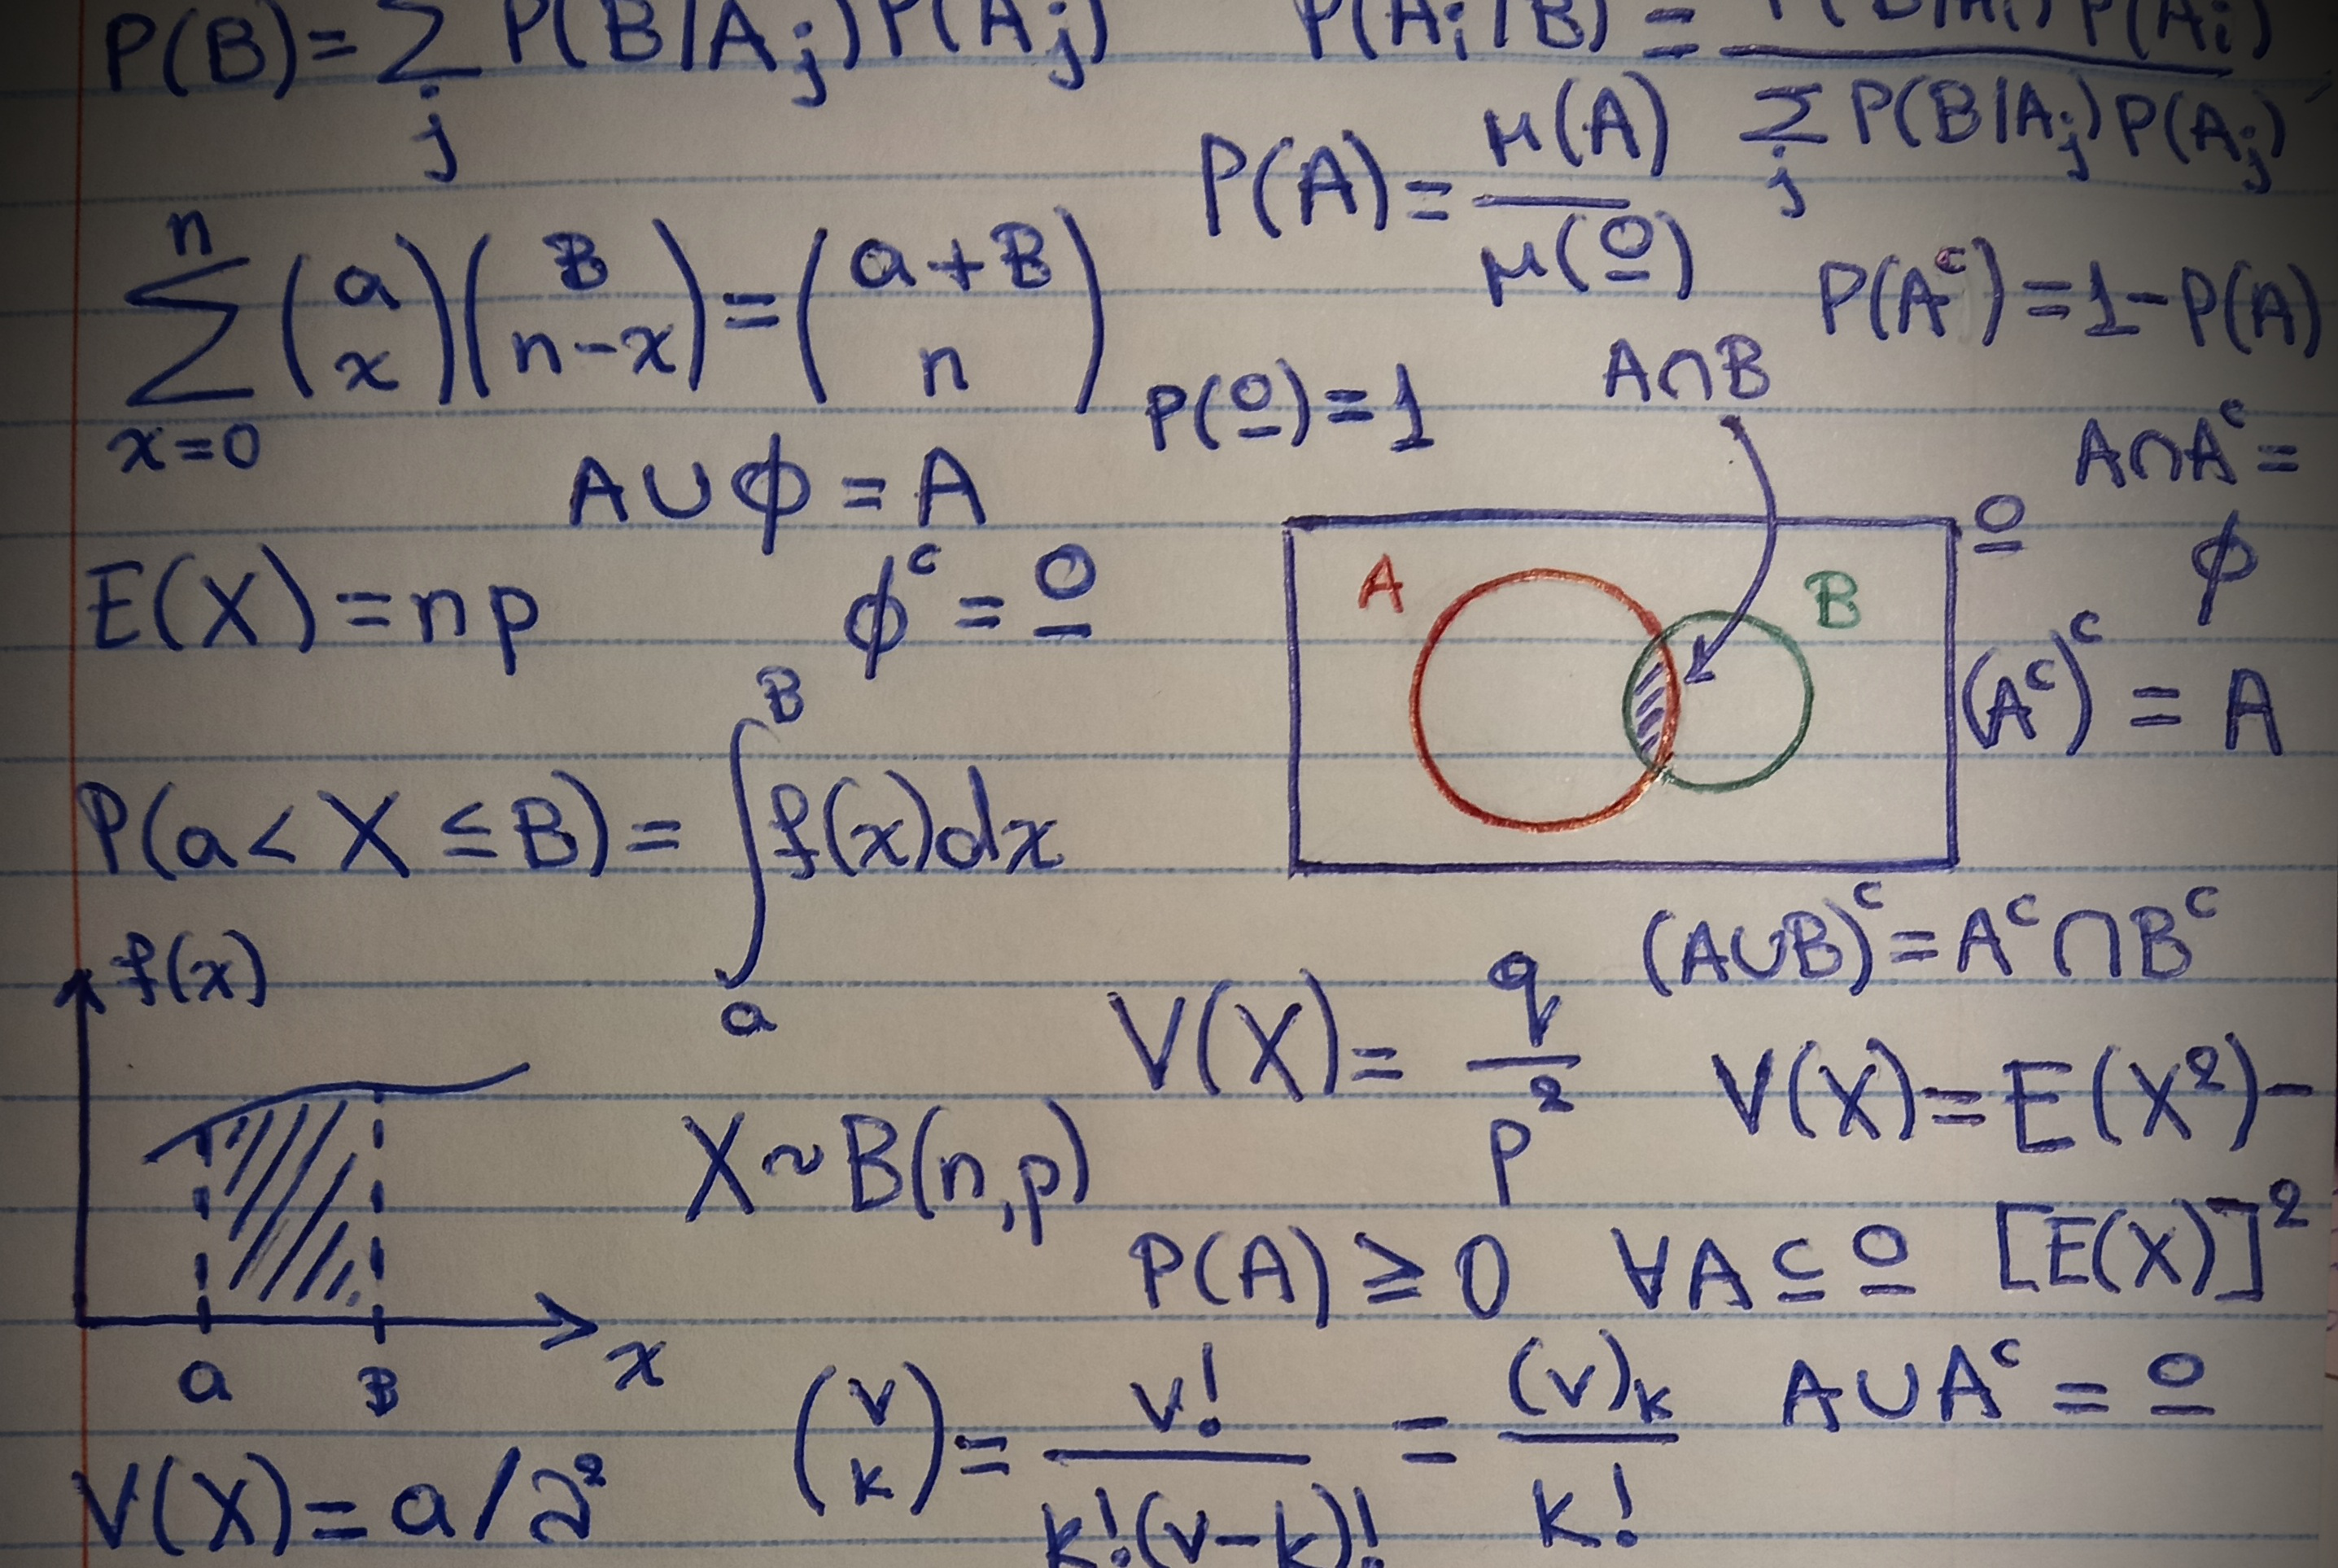 P(B)=∑_j P(B/A_j)P(A_j)
P(A_i/B)=P(B/A_i)P(A_i)/∑_j P(B/A_j)P(A_j)
P(A)=μ(A)/μ(Ω)
∑_{x=0}^{n} (a x)(B n-x)=(a+B n)
P(A^c)=1-P(A)
P(Ω)=1
A∩B
A∪ϕ=A
A∩A^c=
ϕ
E(X)=np
ϕ^c=Ω
Ω
A
B
(A^c)^c=A
P(a<X≤B)=∫_a^B f(x)dx
(A∪B)^c=A^c∩B^c
f(x)
a
B
x
V(X)=q/p^2
V(X)=E(X^2)-
[E(X)]^2
X~B(n,p)
P(A)≥0 ∀A⊆Ω
A∪A^c=Ω
(v k)=v!/k!(v-k)!=(v)_k/k!
V(X)=a/∂^2